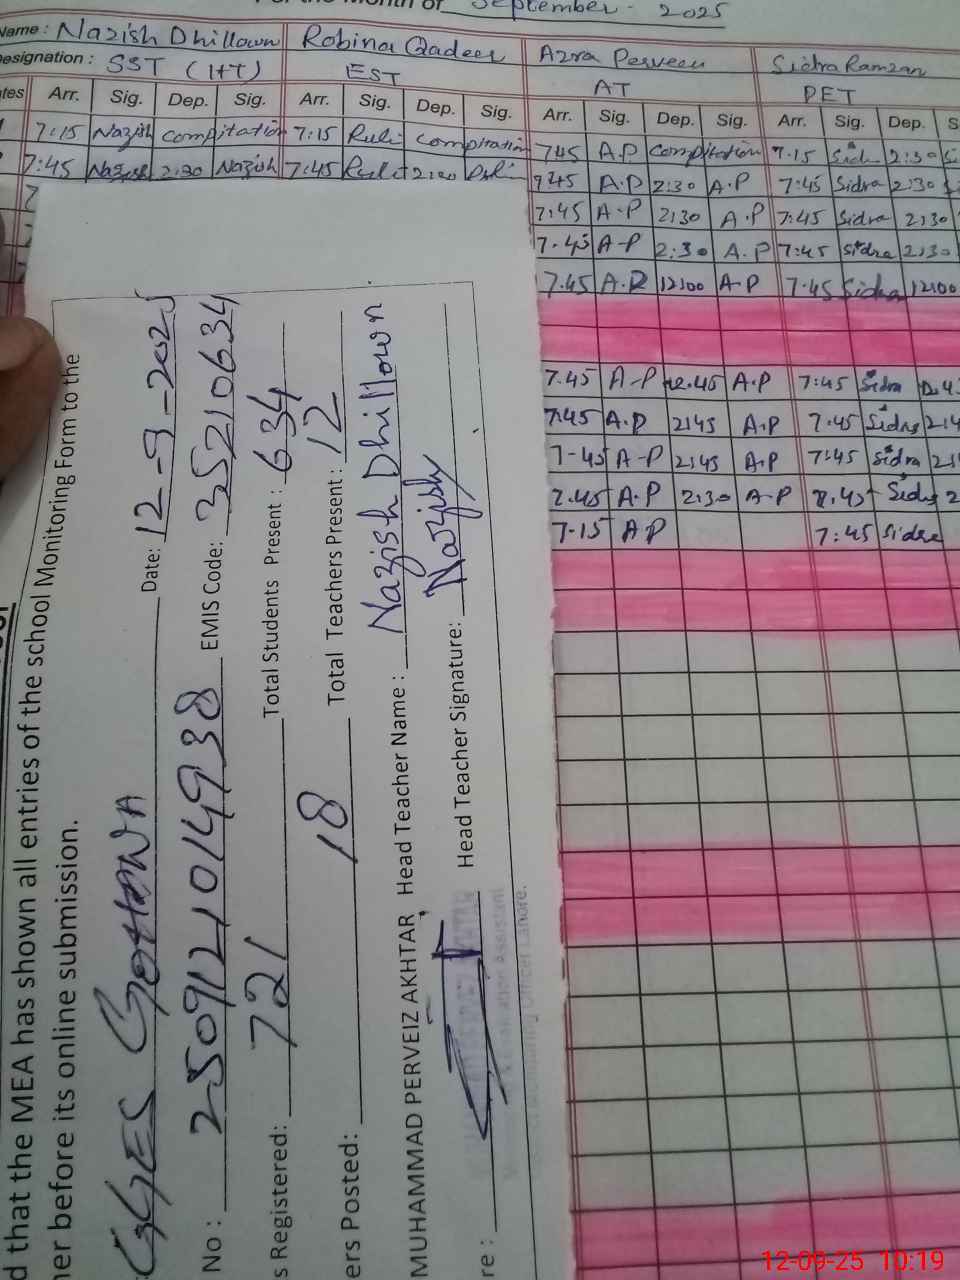 For the Month of September - 2025
Name : Nazish Dhillown Robina Qadeer Azra Perveen Sidra Ramzan
Designation : SST (HT) EST AT PET
Arr. Sig. Dep. Sig. Arr. Sig. Dep. Sig. Arr. Sig. Dep. Sig. Arr. Sig. Dep.
7:15 Nazish compitation 7:15 compitation 745 A.P compitation 7.15 2:30
7:45 2:30 Nazish 7:45 745 A.P 2:30 A.P 7:45 Sidra 2:30
7:45 A-P 2:30 A.P 7:45 Sidra 2:30
7.45 A-P 2:30 A.P 7:45 Sidra 2:30
7.45 A.P 12:00 A-P 7.45 Sidra 12:00
7.45 A-P 12.45 A.P 7:45 Sidra
7.45 A.P 2:45 A.P 7.45 Sidra
7-45 A-P 2:45 A.P 7:45 Sidra
7.45 A.P 2:30 A-P Sidra
7-15 A.P 7:45 Sidra
d that the MEA has shown all entries of the school Monitoring Form to the
ner before its online submission.
Date: 12-9-2025
No : 2509121014938 EMIS Code: 35210634
s Registered: 721 Total Students Present : 634
ers Posted: 18 Total Teachers Present : 12
MUHAMMAD PERVEIZ AKHTAR Head Teacher Name : Nazish Dhillown
re : Head Teacher Signature: Nazish
12-09-25 10:19